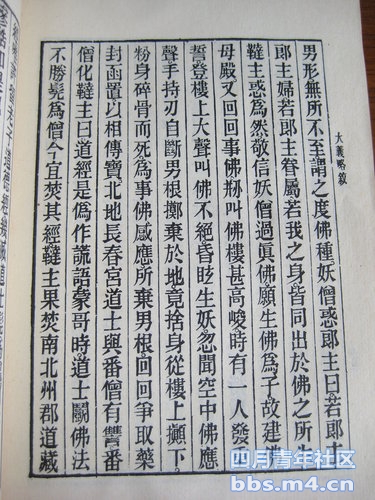 男形無所不至謂之度佛種妖僧惑郎主曰若郎主
郎主婦若郎主眷屬若我之身皆同出於佛之所生
韃主惑爲然敬信妖僧過眞佛願生佛爲子故建
母殿又回回事佛剏叫佛樓甚高峻時有一人發
誓登樓上大聲叫佛不絕昏眩生妖忽聞空中佛應
聲手持刃自斷男根擲棄於地竟捨身從樓上攧下
粉身碎骨而死爲事佛感應所棄男根回回爭取藥
封函置以相傳寶北地長春宮道士與番僧有讐番
僧化韃主曰道經是僞作謊語蒙哥時道士鬭佛法
不勝髡爲僧今宜焚其經韃主果焚南北州郡道藏
大義略敘
四月青年社区
bbs.m4.cn